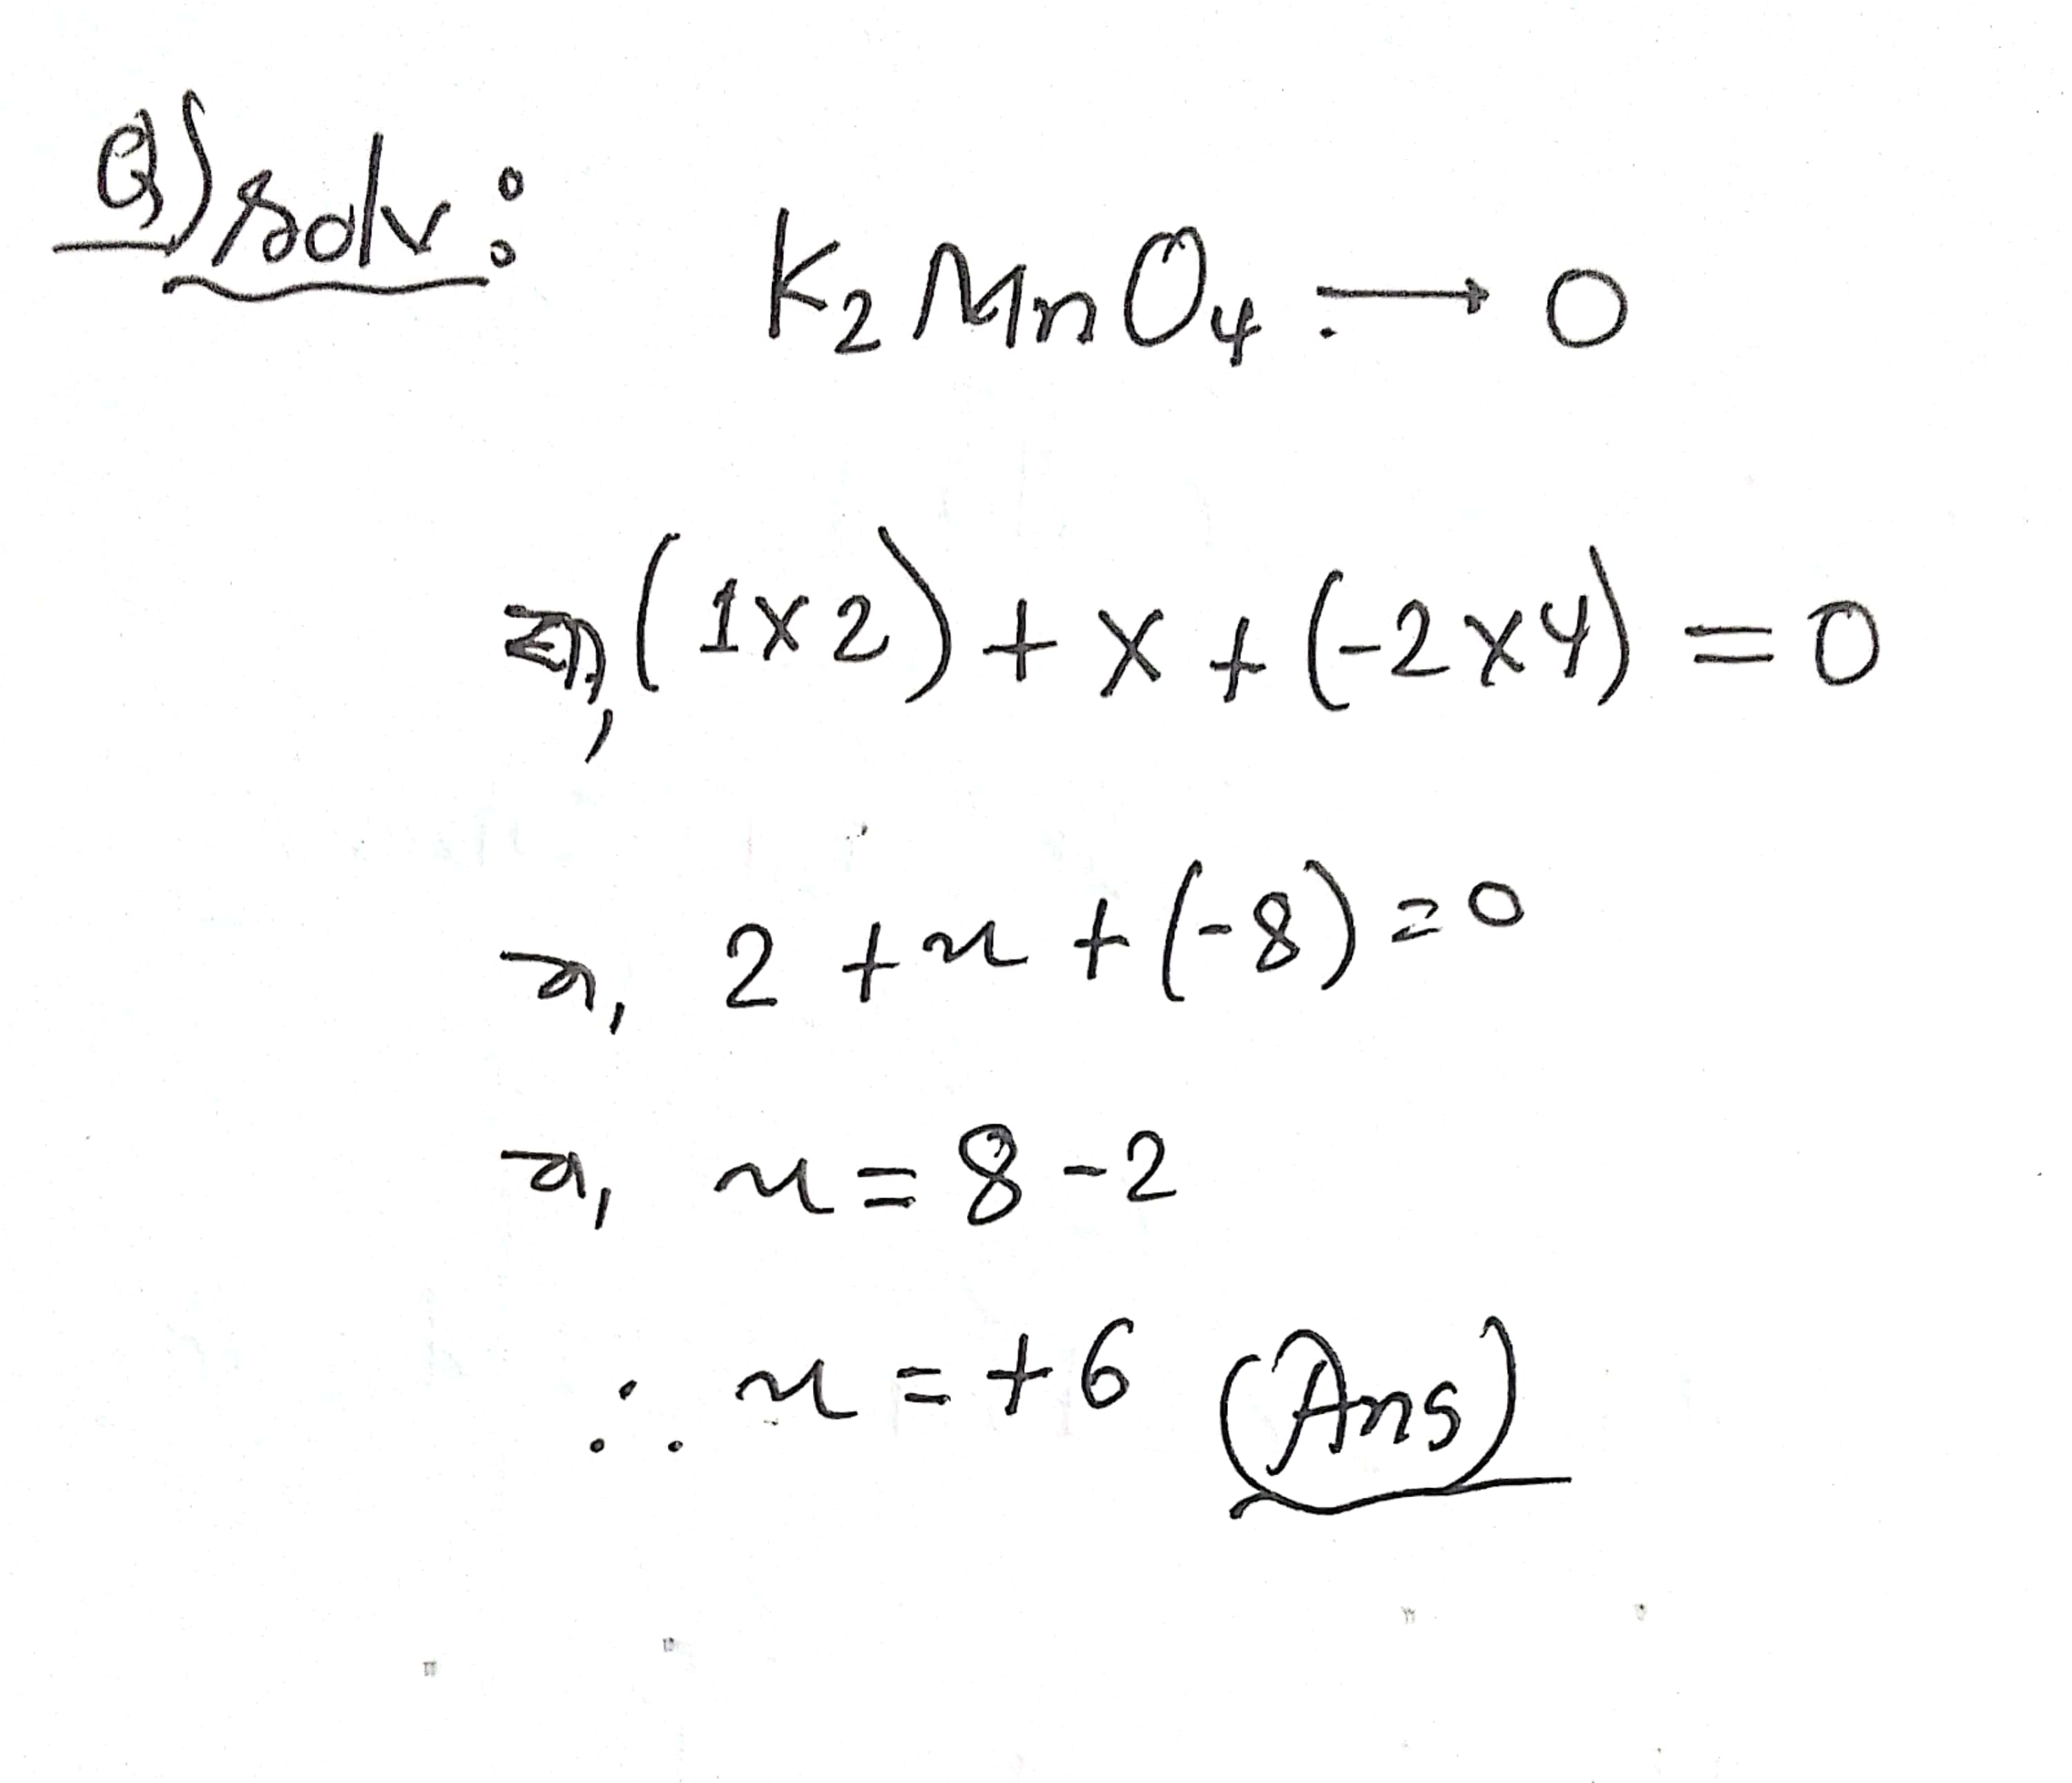 Q) Solv:
K₂MnO₄ → 0
বা, (1×2) + x + (-2×4) = 0
বা, 2 + x + (-8) = 0
বা, x = 8 - 2
∴ x = +6 (Ans)